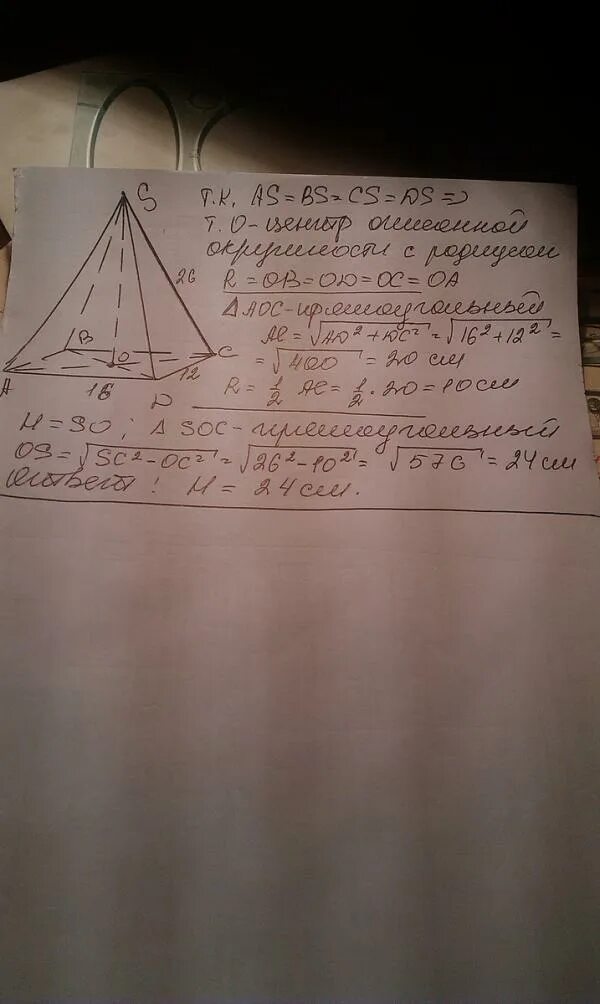 S
26
B
O
C
A
16
12
D
Т.К. AS = BS = CS = DS =>
Т. О-центр описанной
окружности с радиусом
R = OB = OD = OC = OA
△ADC-прямоугольный
AC = √AD² + DC² = √16² + 12² =
= √400 = 20 см
R = 1/2 AC = 1/2 · 20 = 10 см
H = SO ; △ SOC-прямоугольный
OS = √SC² - OC² = √26² - 10² = √576 = 24 см
Ответ: H = 24 см.